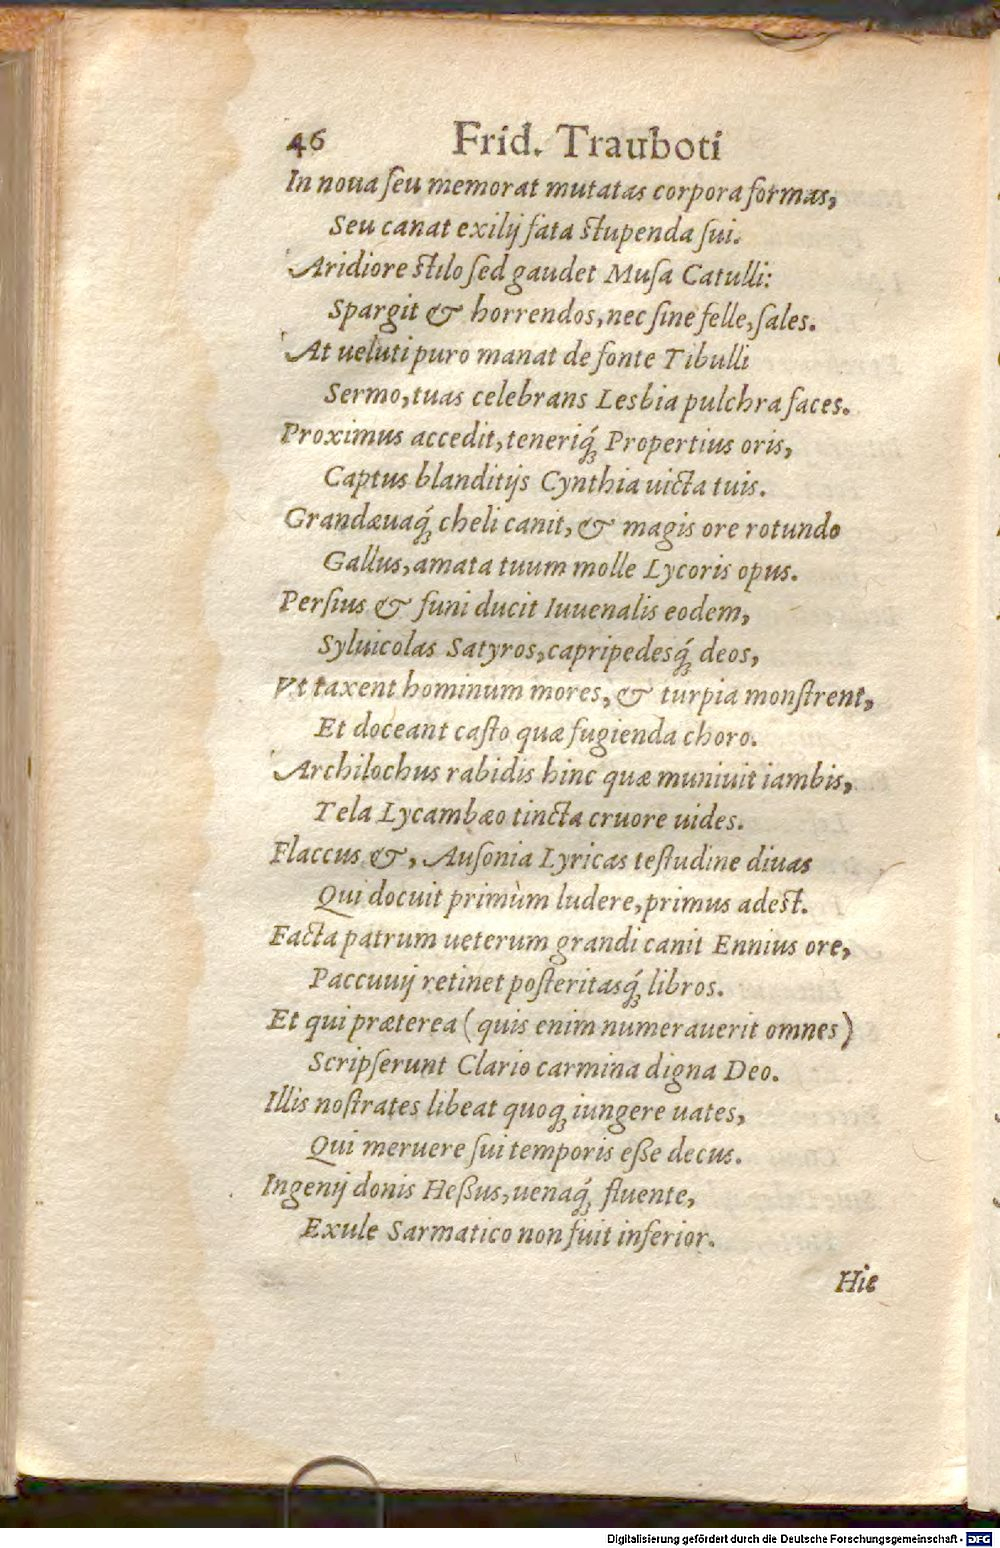 46 Frid. Trauboti
In noua ſeu memorat mutatas corpora formas,
Seu canat exilij fata ſtupenda ſui.
Aridiore ſtilo ſed gaudet Muſa Catulli:
Spargit & horrendos, nec ſine felle, ſales.
At ueluti puro manat de fonte Tibulli
Sermo, tuas celebrans Lesbia pulchra faces.
Proximus accedit, teneriq́ꝫ Propertius oris,
Captus blanditijs Cynthia uicta tuis.
Grandæuaq́ꝫ cheli canit, & magis ore rotundo
Gallus, amata tuum molle Lycoris opus.
Perſius & funi ducit Iuuenalis eodem,
Syluicolas Satyros, capripedesq́ꝫ deos,
Vt taxent hominum mores, & turpia monſtrent,
Et doceant caſto quæ fugienda choro.
Archilochus rabidis hinc quæ muniuit iambis,
Tela Lycambæo tincta cruore uides.
Flaccus &, Auſonia Lyricas teſtudine diuas
Qui docuit primùm ludere, primus adeſt.
Facta patrum ueterum grandi canit Ennius ore,
Paccuuij retinet poſteritasq́ꝫ libros.
Et qui præterea (quis enim numerauerit omnes)
Scripſerunt Clario carmina digna Deo.
Illis noſtrates libeat quoqꝫ iungere uates,
Qui meruere ſui temporis eſſe decus.
Ingenij donis Heſſus, uenaq́ꝫ fluente,
Exule Sarmatico non fuit inferior.
Hic
Digitalisierung gefördert durch die Deutsche Forschungsgemeinschaft - DFG